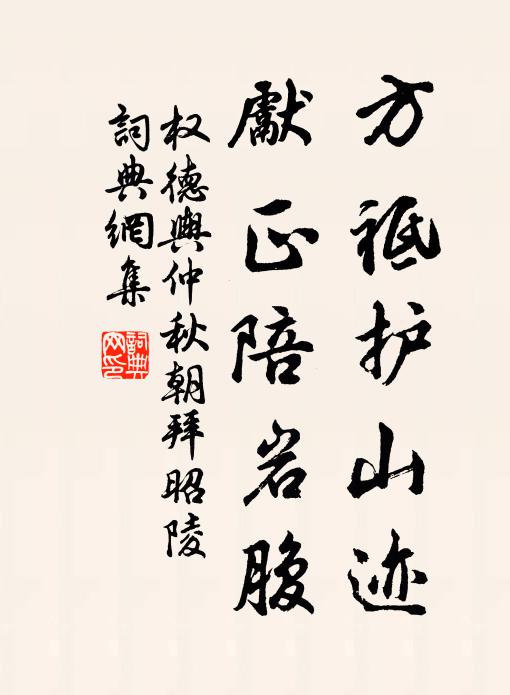 方祗护山迹
献正陪岩腹
权德舆仲秋朝拜昭陵
词典網集
詞典网印